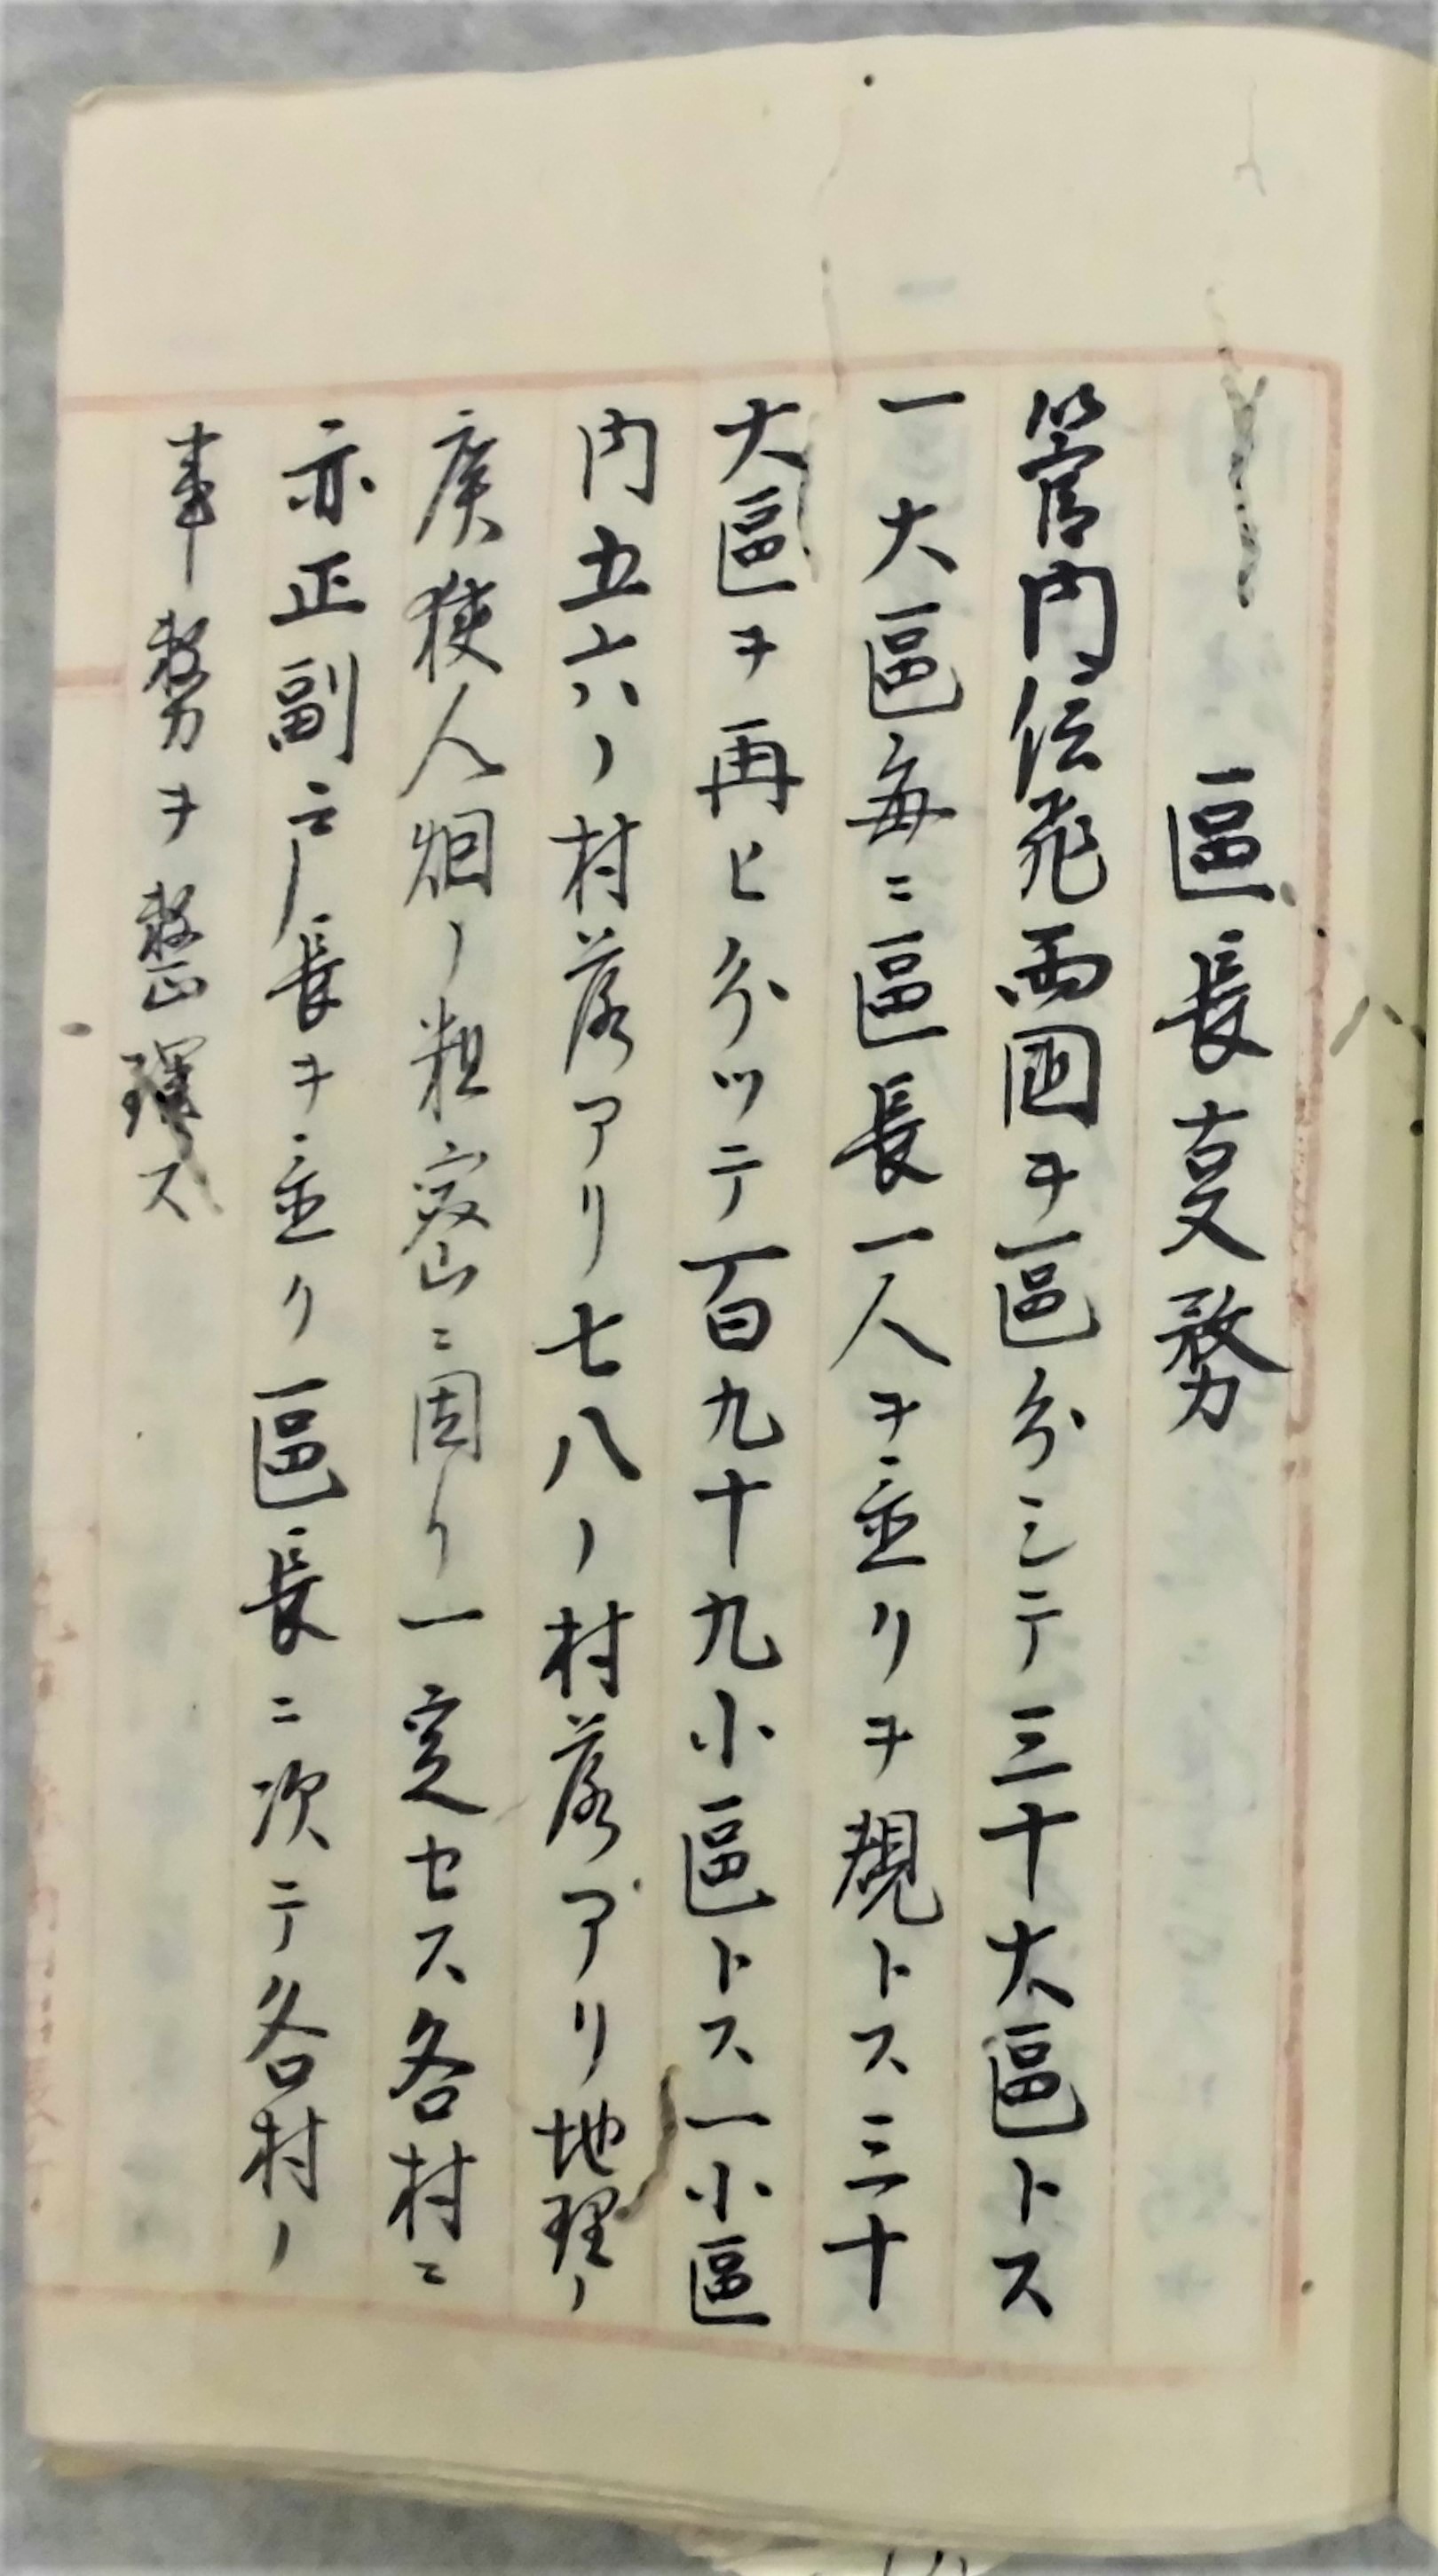 區長事務
管内信飛両國ヲ區分シテ三十大區トス
一大區毎ニ區長一人ヲ並リヲ規トス三十
大區ヲ再ヒ分ツテ一百九十九小區トス一小區
内五六ノ村落アリ七八ノ村落アリ地理ノ
廣狭人烟ノ粗密ニ因リ一定セス各村ニ
亦正副戸長ヲ並ク區長ニ次テ各村ノ
事務ヲ整理ス